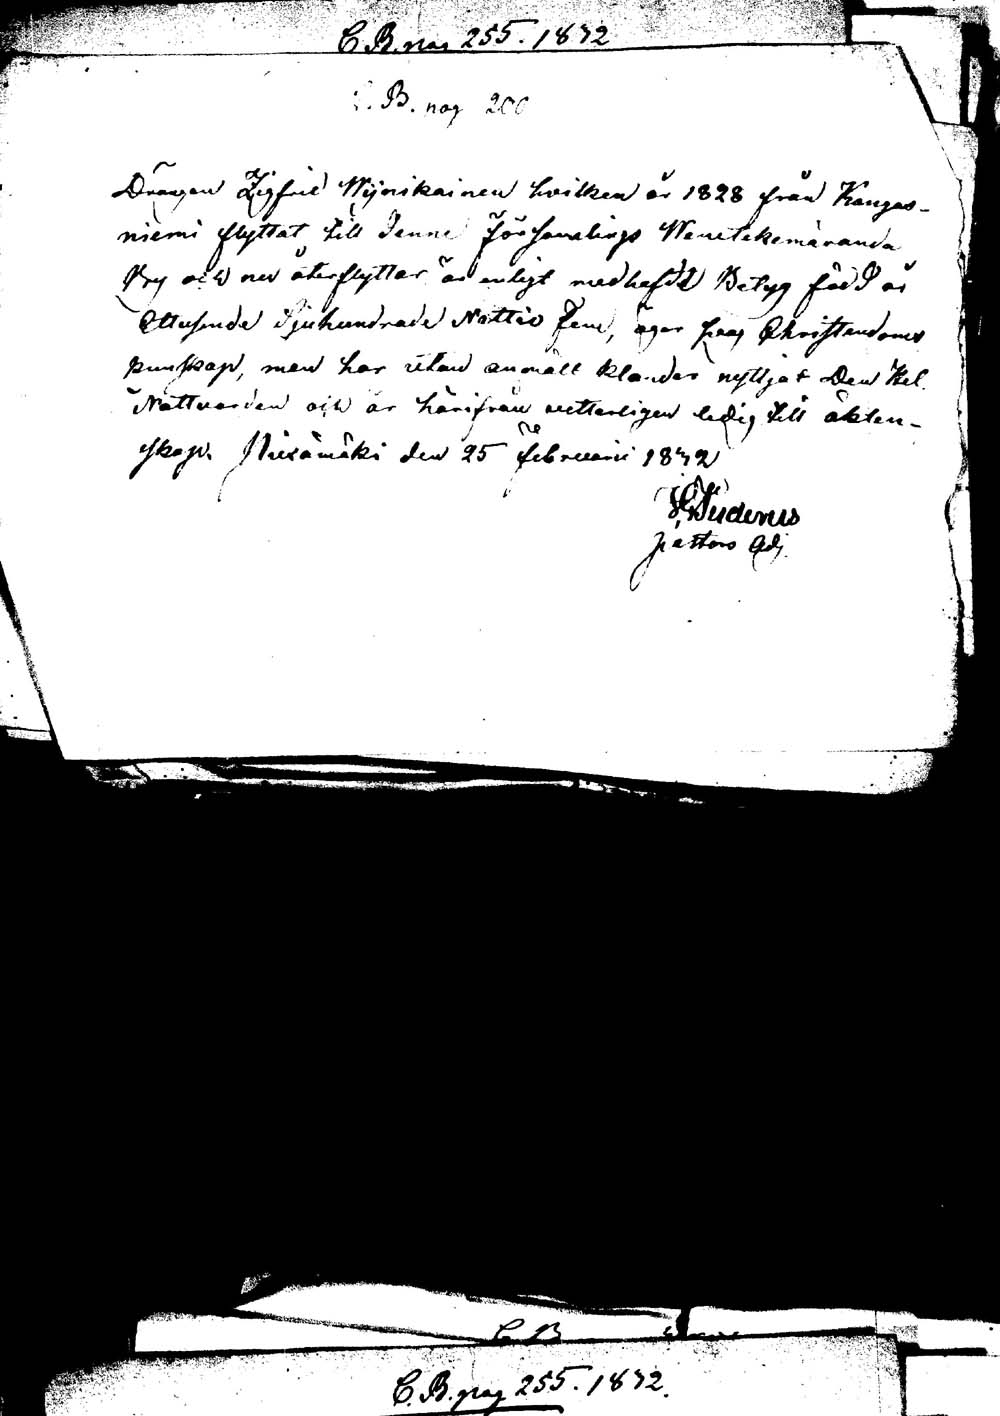 C.B. pag 255. 1832
C.B. pag 200
Drängen Zigfrid Wijnikainen hvilken år 1828 från Kangas-
niemi flyttat till denne Församlings
By och nu återflyttar är enligt medhafdt Betyg född år
Ettusende Sjuhundrade Nottio Fem, äger svag Christendoms
kunskap, men har utan anmält klander nyttjat Den Hel.
Nattvarden och är härifrån vetterligen ledig till äkten-
skap. Piexämäki den 25 februarii 1832
pastors Adj.
C.B.
C.B. pag 255. 1832.